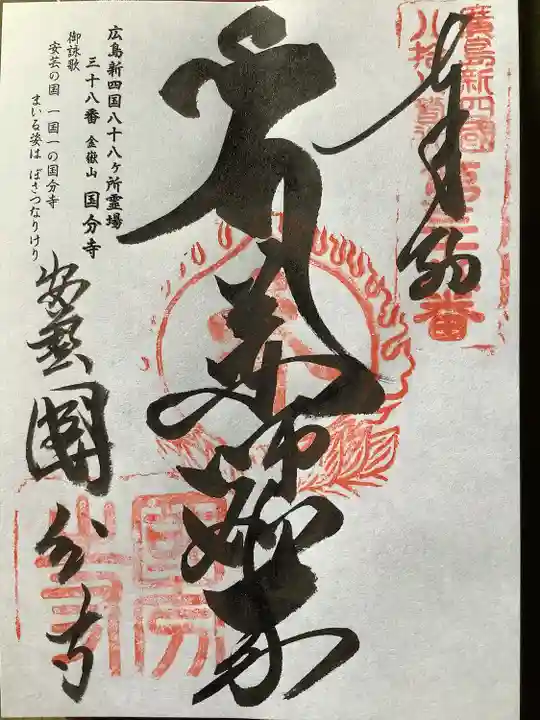 奉拝
廣島新四國
八拾八ヶ所
第三十八番
薬師如来
広島新四国八十八ヶ所霊場
三十八番 金嶽山 国分寺
御詠歌
安芸の国 一国一の国分寺
まいる姿は ぼさつなりけり
安芸國分寺
國分
寺印